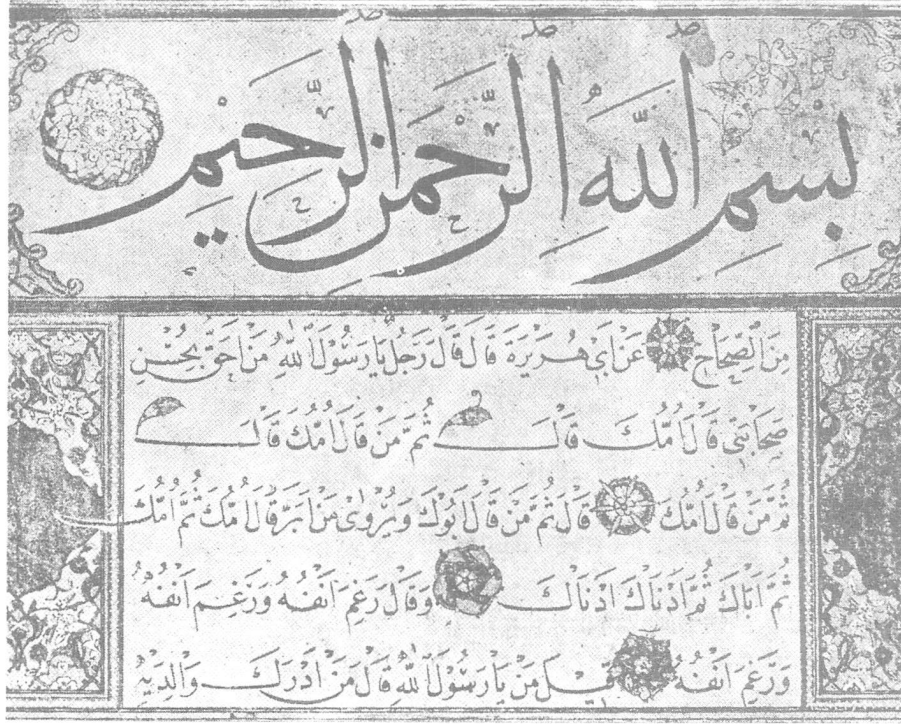 بِسْمِ اللهِ الرَّحْمٰنِ الرَّحِيْمِ
مِنَ الصِّحَاحِ عَنْ اَبِي هُرَيْرَةَ قَالَ قَالَ رَجُلٌ يَا رَسُوْلَ اللهِ مَنْ اَحَقُّ بِحُسْنِ
صَحَابَتِى قَالَ اُمُّكَ قَالَ ثُمَّ مَنْ قَالَ اُمُّكَ قَالَ
ثُمَّ مَنْ قَالَ اُمُّكَ قَالَ ثُمَّ مَنْ قَالَ اَبُوْكَ وَيُرْوٰى مَنْ اَبَرُّ قَالَ اُمُّكَ ثُمَّ اُمُّكَ
ثُمَّ اَبَاكَ ثُمَّ اَدْنَاكَ اَدْنَاكَ وَقَالَ رَغِمَ اَنْفُهُ وَرَغِمَ اَنْفُهُ
وَرَغِمَ اَنْفُهُ قِيْلَ مَنْ يَا رَسُوْلَ اللهِ قَالَ مَنْ اَدْرَكَ وَالِدَيْهِ